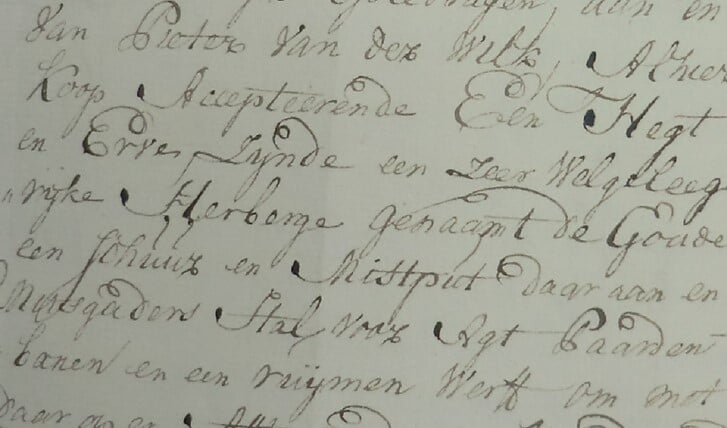 aan en
van Pieter van der Wilk, Alhier
Koop Accepteerende Een Hegt
en Erve, Zynde een zeer Welgeleeg
„rijke Herberge genaamt de Goude
een schuur en Mistput daar aan en
Mitsgaders Stal voor Agt Paarden
banen en een ruijmen Werff om met
daar op en